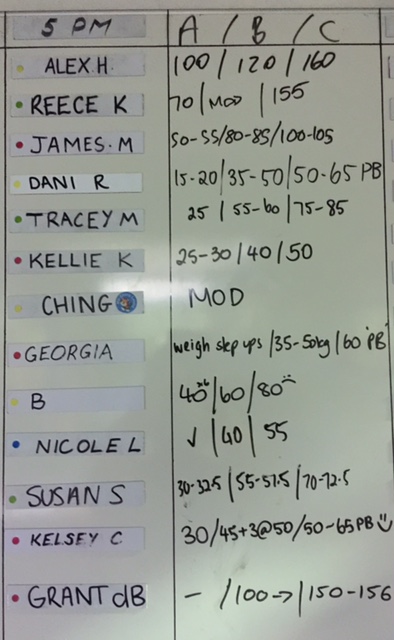 5 PM A / B / C
ALEX.H. 100 / 120 / 160
REECE K 70 / MOD / 155
JAMES.M 50-55/80-85/100-105
DANI R 15-20/35-50/50-65 PB
TRACEY M 25 / 55-60 / 75-85
KELLIE K 25-30 / 40 / 50
CHING MOD
GEORGIA weigh step ups / 35-50kg / 60 "PB"
B 40x6 / 60 / 80
NICOLE L ✓ / 40 / 55
SUSAN S 30-32.5 / 55-57.5 / 70-72.5
KELSEY C 30/45+3@50/50-65 PB
GRANT dB - / 100→ / 150-156